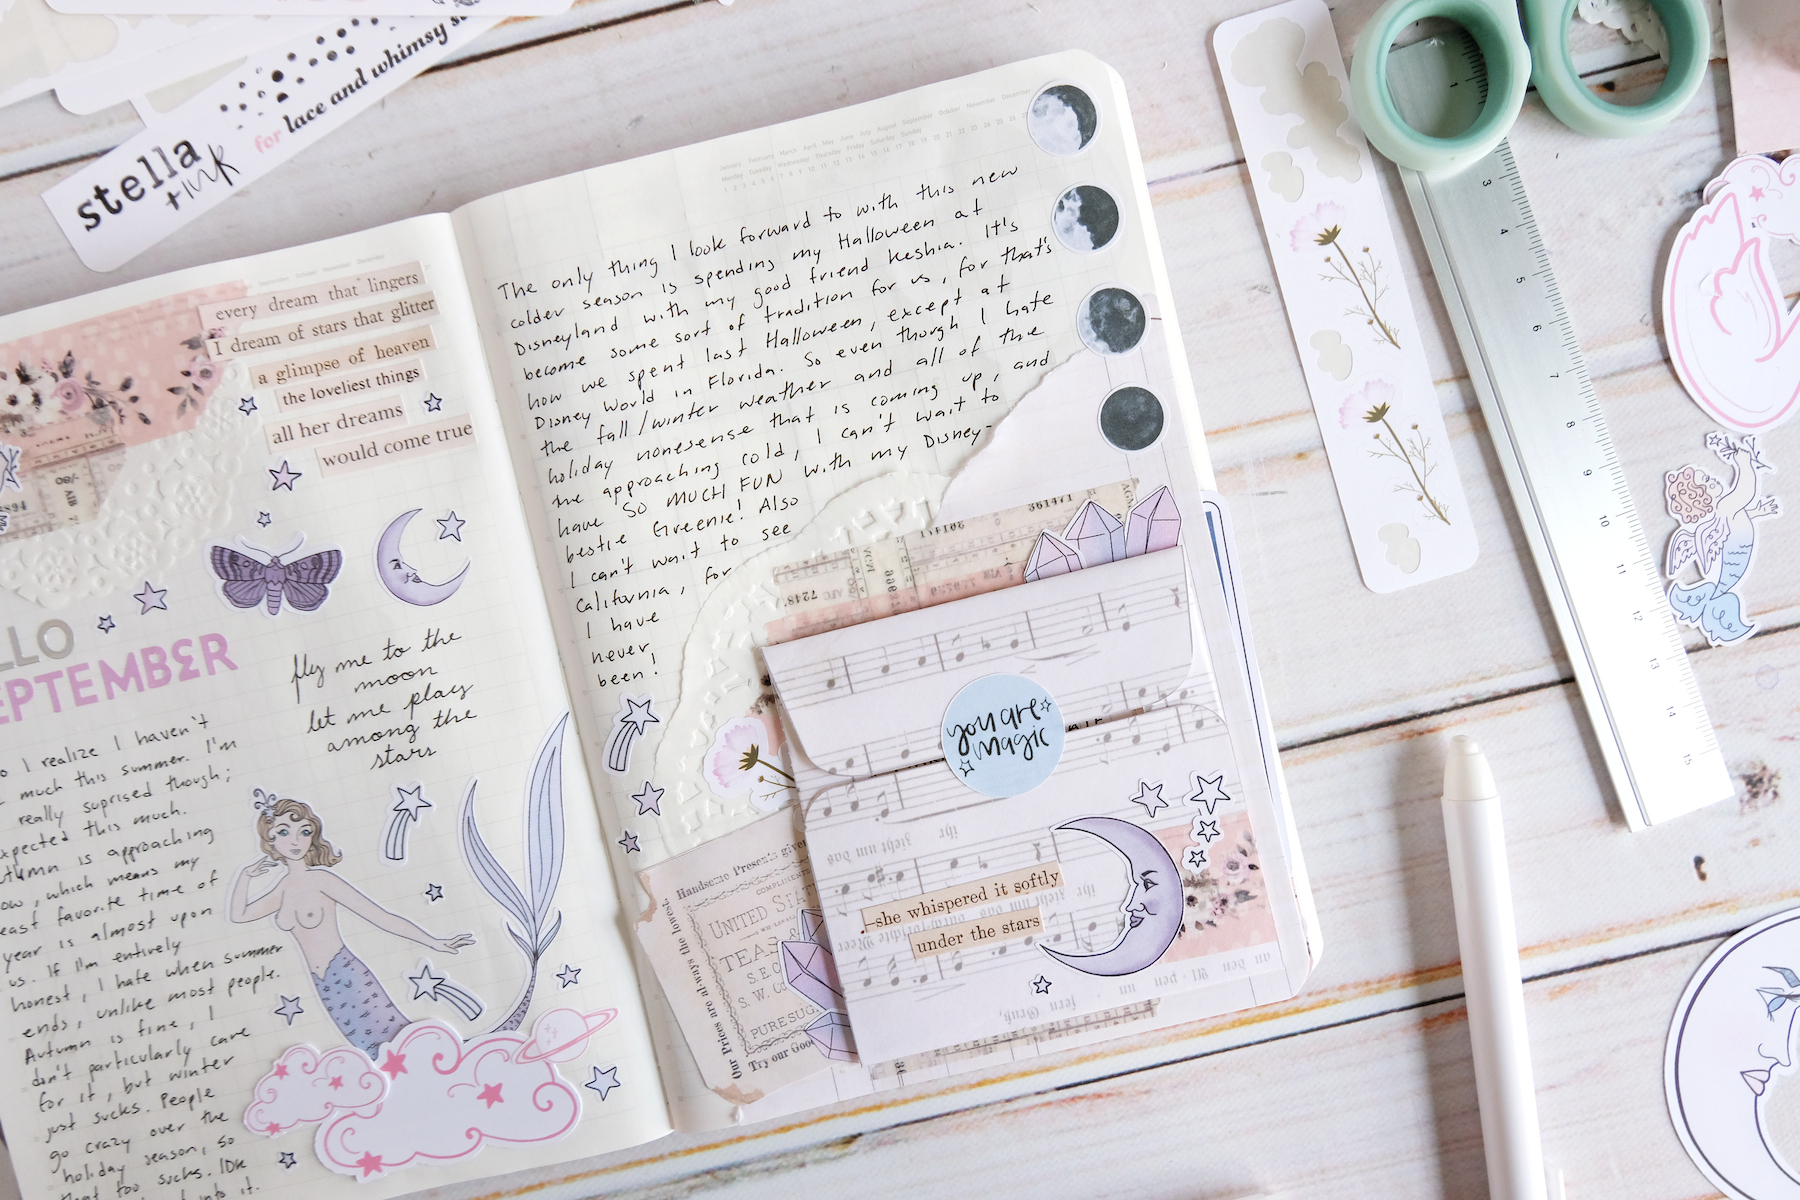 stella
+ INK
for lace and whimsy
every dream that lingers
I dream of stars that glitter
a glimpse of heaven
the loveliest things
all her dreams
would come true
LLO
EPTEMBER
fly me to the
moon
let me play
among the
stars
I realize I haven't
much this summer. I'm
really suprised though;
xpected this much.
utumn is approaching
ow, which means my
east favorite time of
year is almost upon
us. If I'm entirely
honest, I hate when summer
ends, unlike most people.
Autumn is fine, I
don't particularly care
for it, but winter
just sucks. People
go crazy over the
holiday season, so
that too sucks. IDK
into it.
January February March April May June July August September October November December
Monday Tuesday Wednesday Thursday Friday Saturday Sunday
The only thing I look forward to with this new
colder season is spending my Halloween at
Disneyland with my good friend Keshia. It's
become some sort of tradition for us, for that's
how we spent last Halloween, except at
Disney World in Florida. So even though I hate
the fall/winter weather and all of the
holiday nonesense that is coming up, and
the approaching cold, I can't wait to
have SO MUCH FUN with my Disney-
bestie Greenie! Also
I can't wait to see
California, for
I have
never
been!
361471
7248
you are
magic
—she whispered it softly
under the stars
Handsome Presents given
COMPLIMENT
UNITED STAT
TEA &
S. W. CO
PURE SUG
Try our Goo
Our Prices are always the lowest.
1
3
4
5
6
7
8
9
10
11
12
13
14
15